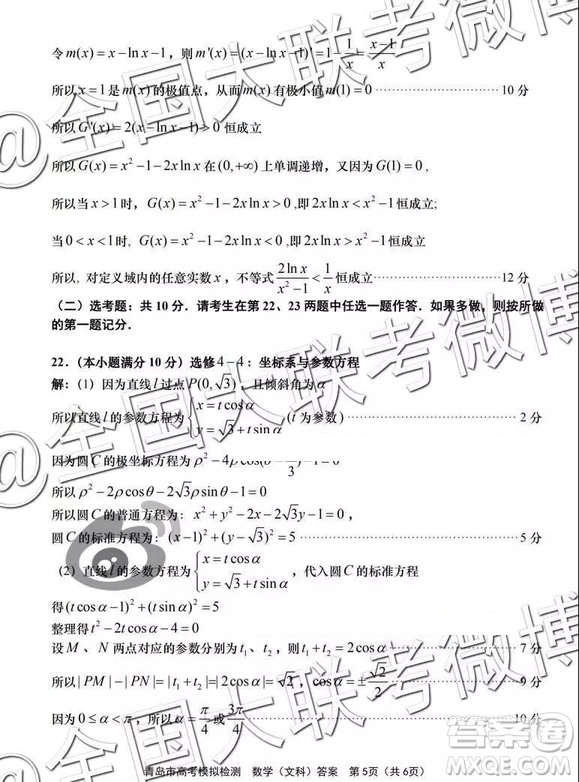 令m(x)=x−ln x−1，则m'(x)=(x−ln x−1)'=1−1/x=(x−1)/x
所以x=1是m(x)的极值点，从而m(x)有极小值m(1)=0 ⋯⋯ 10 分
所以G'(x)=2(x−ln x−1)>0恒成立
所以G(x)=x²−1−2x ln x在(0,+∞)上单调递增，又因为G(1)=0，
所以当x>1时，G(x)=x²−1−2x ln x>0,即2x ln x<x²−1恒成立;
当0<x<1时, G(x)=x²−1−2x ln x<0,即2x ln x>x²−1恒成立
所以，对定义域内的任意实数x，不等式(2 ln x)/(x²−1)<1/x恒成立 ⋯⋯ 12 分
（二）选考题：共 10 分．请考生在第 22、23 两题中任选一题作答．如果多做，则按所做
的第一题记分．
22．（本小题满分 10 分）选修 4－4：坐标系与参数方程
解：（1）因为直线l过点P(0,√3)，且倾斜角为α
所以直线l的参数方程为{x=t cosα
y=√3+t sinα (t为参数) ⋯⋯ 2 分
因为圆C的极坐标方程为ρ²−4ρcos(θ−π/3)−1=0
所以ρ²−2ρcosθ−2√3ρsinθ−1=0
所以圆C的普通方程为：x²+y²−2x−2√3y−1=0，
圆C的标准方程为：(x−1)²+(y−√3)²=5 ⋯⋯ 5 分
（2）直线l的参数方程为{x=t cosα
y=√3+t sinα，代入圆C的标准方程
得(t cosα−1)²+(t sinα)²=5
整理得t²−2t cosα−4=0
设M、N两点对应的参数分别为t₁、t₂，则t₁+t₂=2cosα ⋯⋯ 7 分
所以||PM|−|PN||=|t₁+t₂|=|2cosα|=√2，cosα=±√2/2 ⋯⋯ 9 分
因为0≤α<π，所以α=π/4或3π/4 ⋯⋯ 10 分
青岛市高考模拟检测 数学（文科）答案 第 5 页（共 6 页）
@全国大联考微博